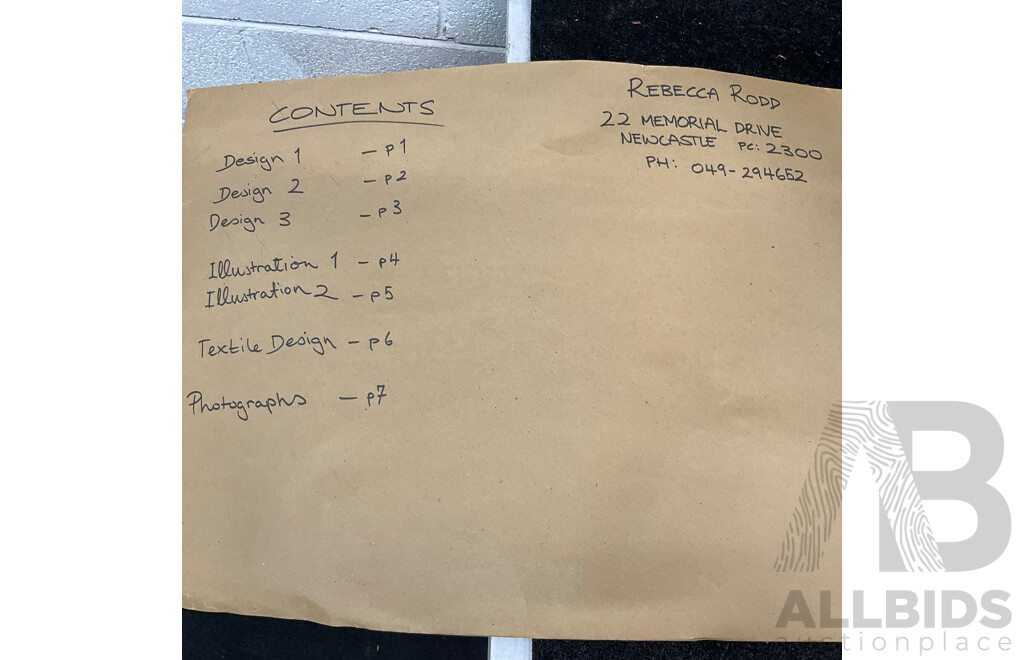 CONTENTS
Design 1 - p1
Design 2 - p2
Design 3 - p3
Illustration 1 - p4
Illustration 2 - p5
Textile Design - p6
Photographs - p7
REBECCA RODD
22 MEMORIAL DRIVE
NEWCASTLE PC: 2300
PH: 049-294652
AB
ALLBIDS
auctionplace